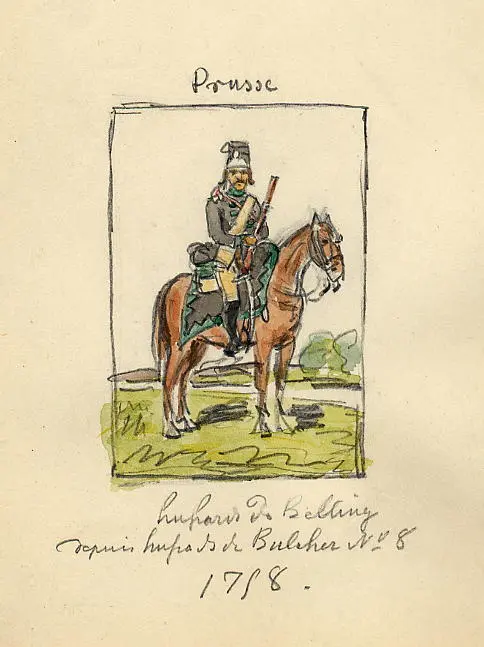 Prusse
husards de Belling
depuis husards de Bulcher Nº 8
1758.